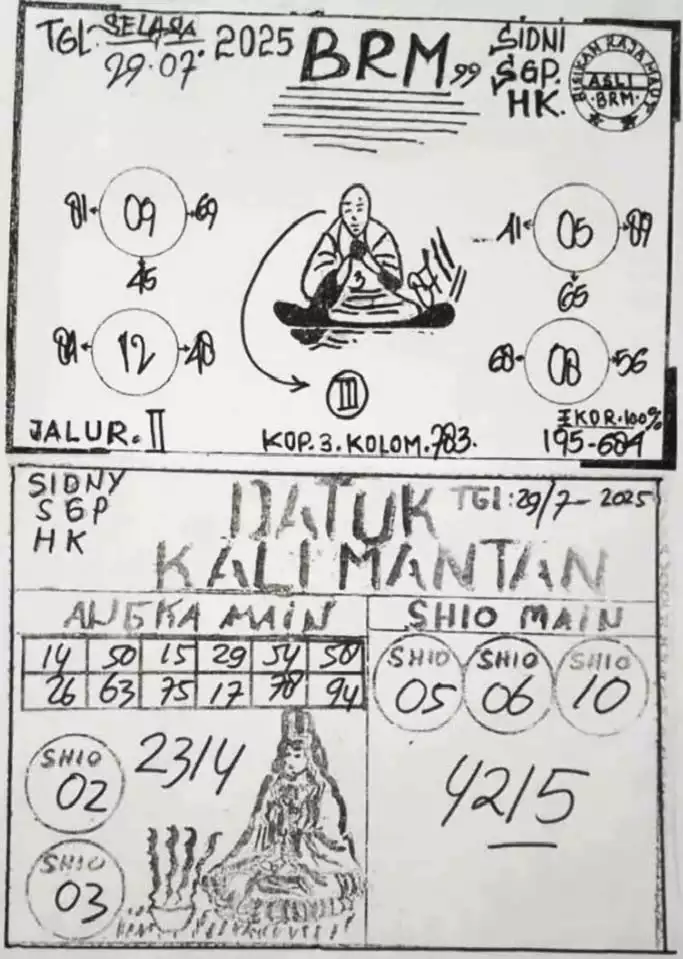 TGL. SELASA 2025
29.07.
BRM 99
SIDNI
SGP.
HK.
BISIKAN RAJA MAUT
ASLI
BRM
81 09 69
45
12 48
3
III
41 05 89
65
68 08 56
JALUR. II
KOP. 3. KOLOM. 783.
EKOR. 100%
195-684
SIDNY
SGP
HK
DATUK
KALIMANTAN
TGl: 29/7- 2025
ANGKA MAIN
14 50 15 29 54
26 63 75 17 78 94
SHIO
02
2314
SHIO
03
SHIO MAIN
SHIO 05 SHIO 06 SHIO 10
4215